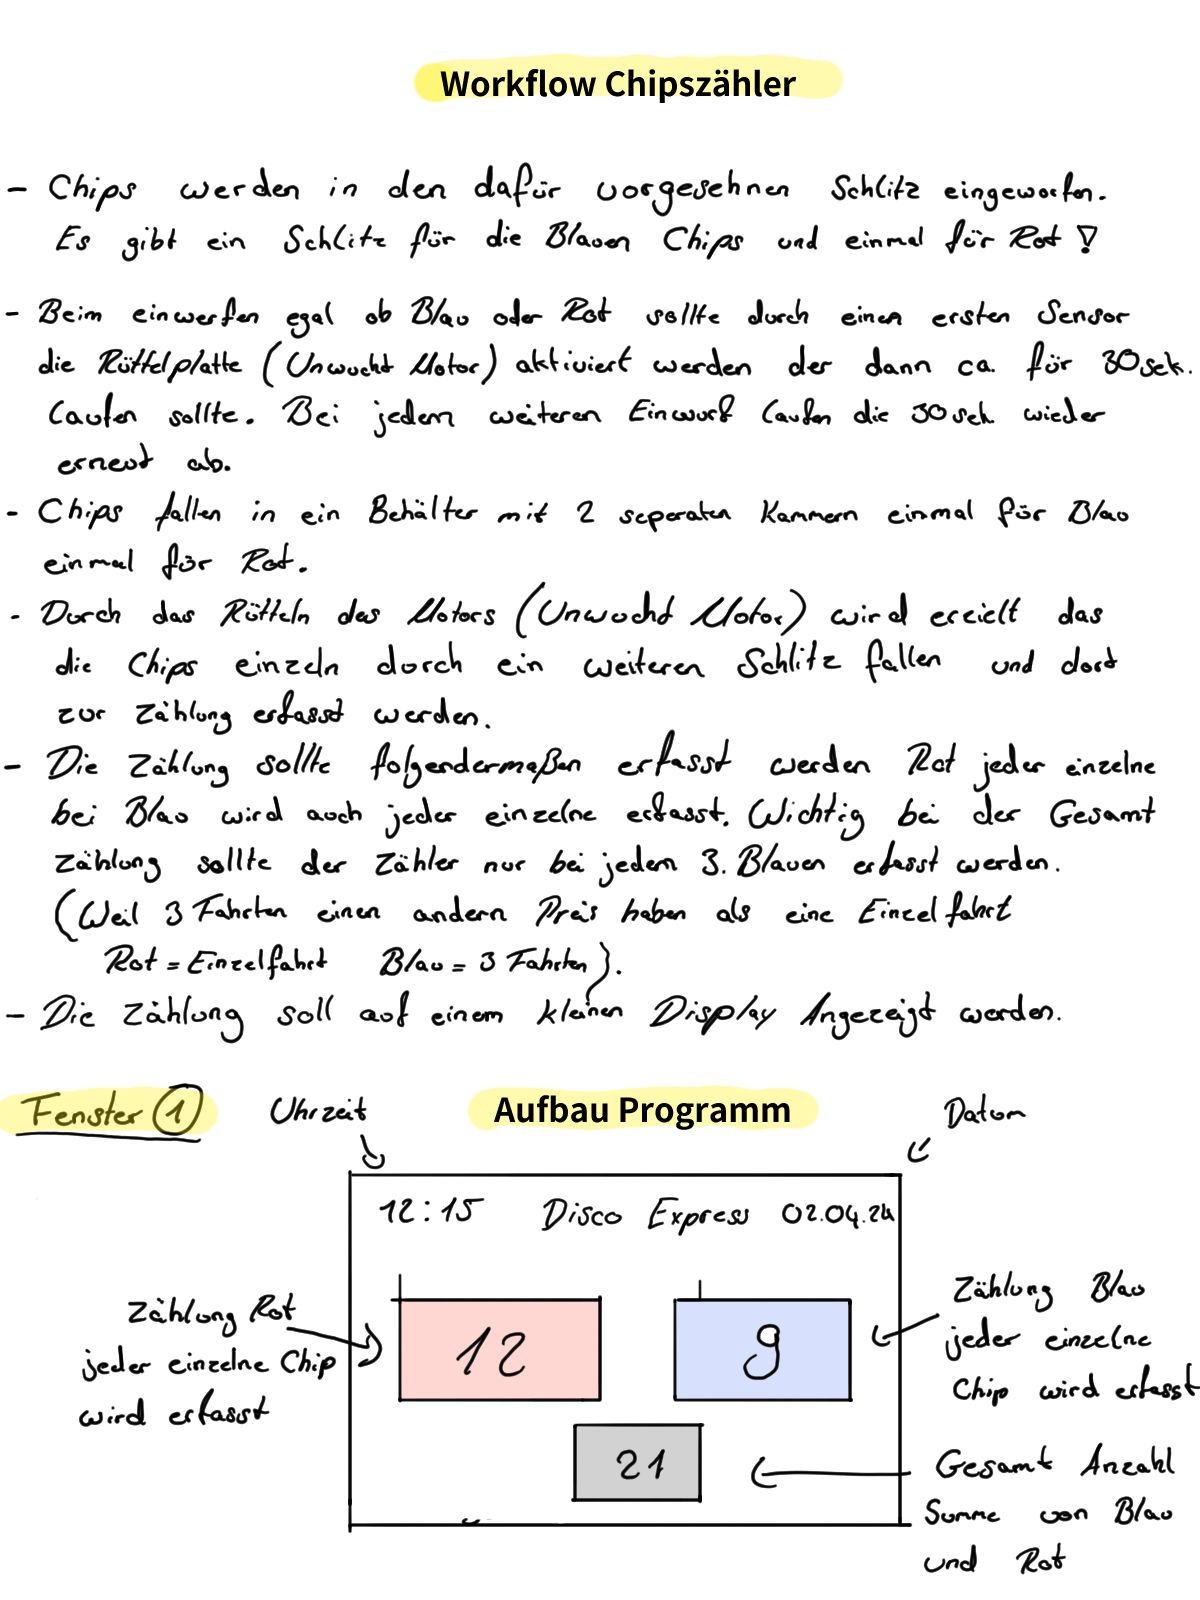 Workflow Chipszähler
- Chips werden in den dafür vorgesehnen Schlitz eingeworfen.
Es gibt ein Schlitz für die Blauen Chips und einmal für Rot !
- Beim einwerfen egal ob Blau oder Rot sollte durch einen ersten Sensor
die Rüttelplatte (Unwucht Motor) aktiviert werden der dann ca. für 30sek.
laufen sollte. Bei jedem weiteren Einwurf laufen die 30sek. wieder
erneut ab.
- Chips fallen in ein Behälter mit 2 seperaten Kammern einmal für Blau
einmal für Rot.
- Durch das Rütteln des Motors (Unwucht Motor) wird erzielt das
die Chips einzeln durch ein weiteren Schlitz fallen und dort
zur Zählung erfasst werden.
- Die Zählung sollte folgendermaßen erfasst werden Rot jeder einzelne
bei Blau wird auch jeder einzelne erfasst. Wichtig bei der Gesamt
Zählung sollte der Zähler nur bei jedem 3. Blauen erfasst werden.
(Weil 3 Fahrten einen andern Preis haben als eine Einzelfahrt
Rot = Einzelfahrt Blau = 3 Fahrten).
- Die Zählung soll auf einem kleinen Display Angezeigt werden.
Fenster 1 Uhrzeit Aufbau Programm Datum
12:15 Disco Express 02.04.24
Zählung Rot
jeder einzelne Chip
wird erfasst
12
9
Zählung Blau
jeder einzelne
Chip wird erfasst
21
Gesamt Anzahl
Summe von Blau
und Rot